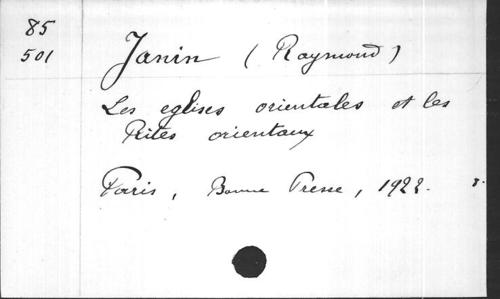 85
501
Janin (Raymond)
Les eglises orientales et les
Rites orientaux
Paris, Bonne Presse, 1922.
8.